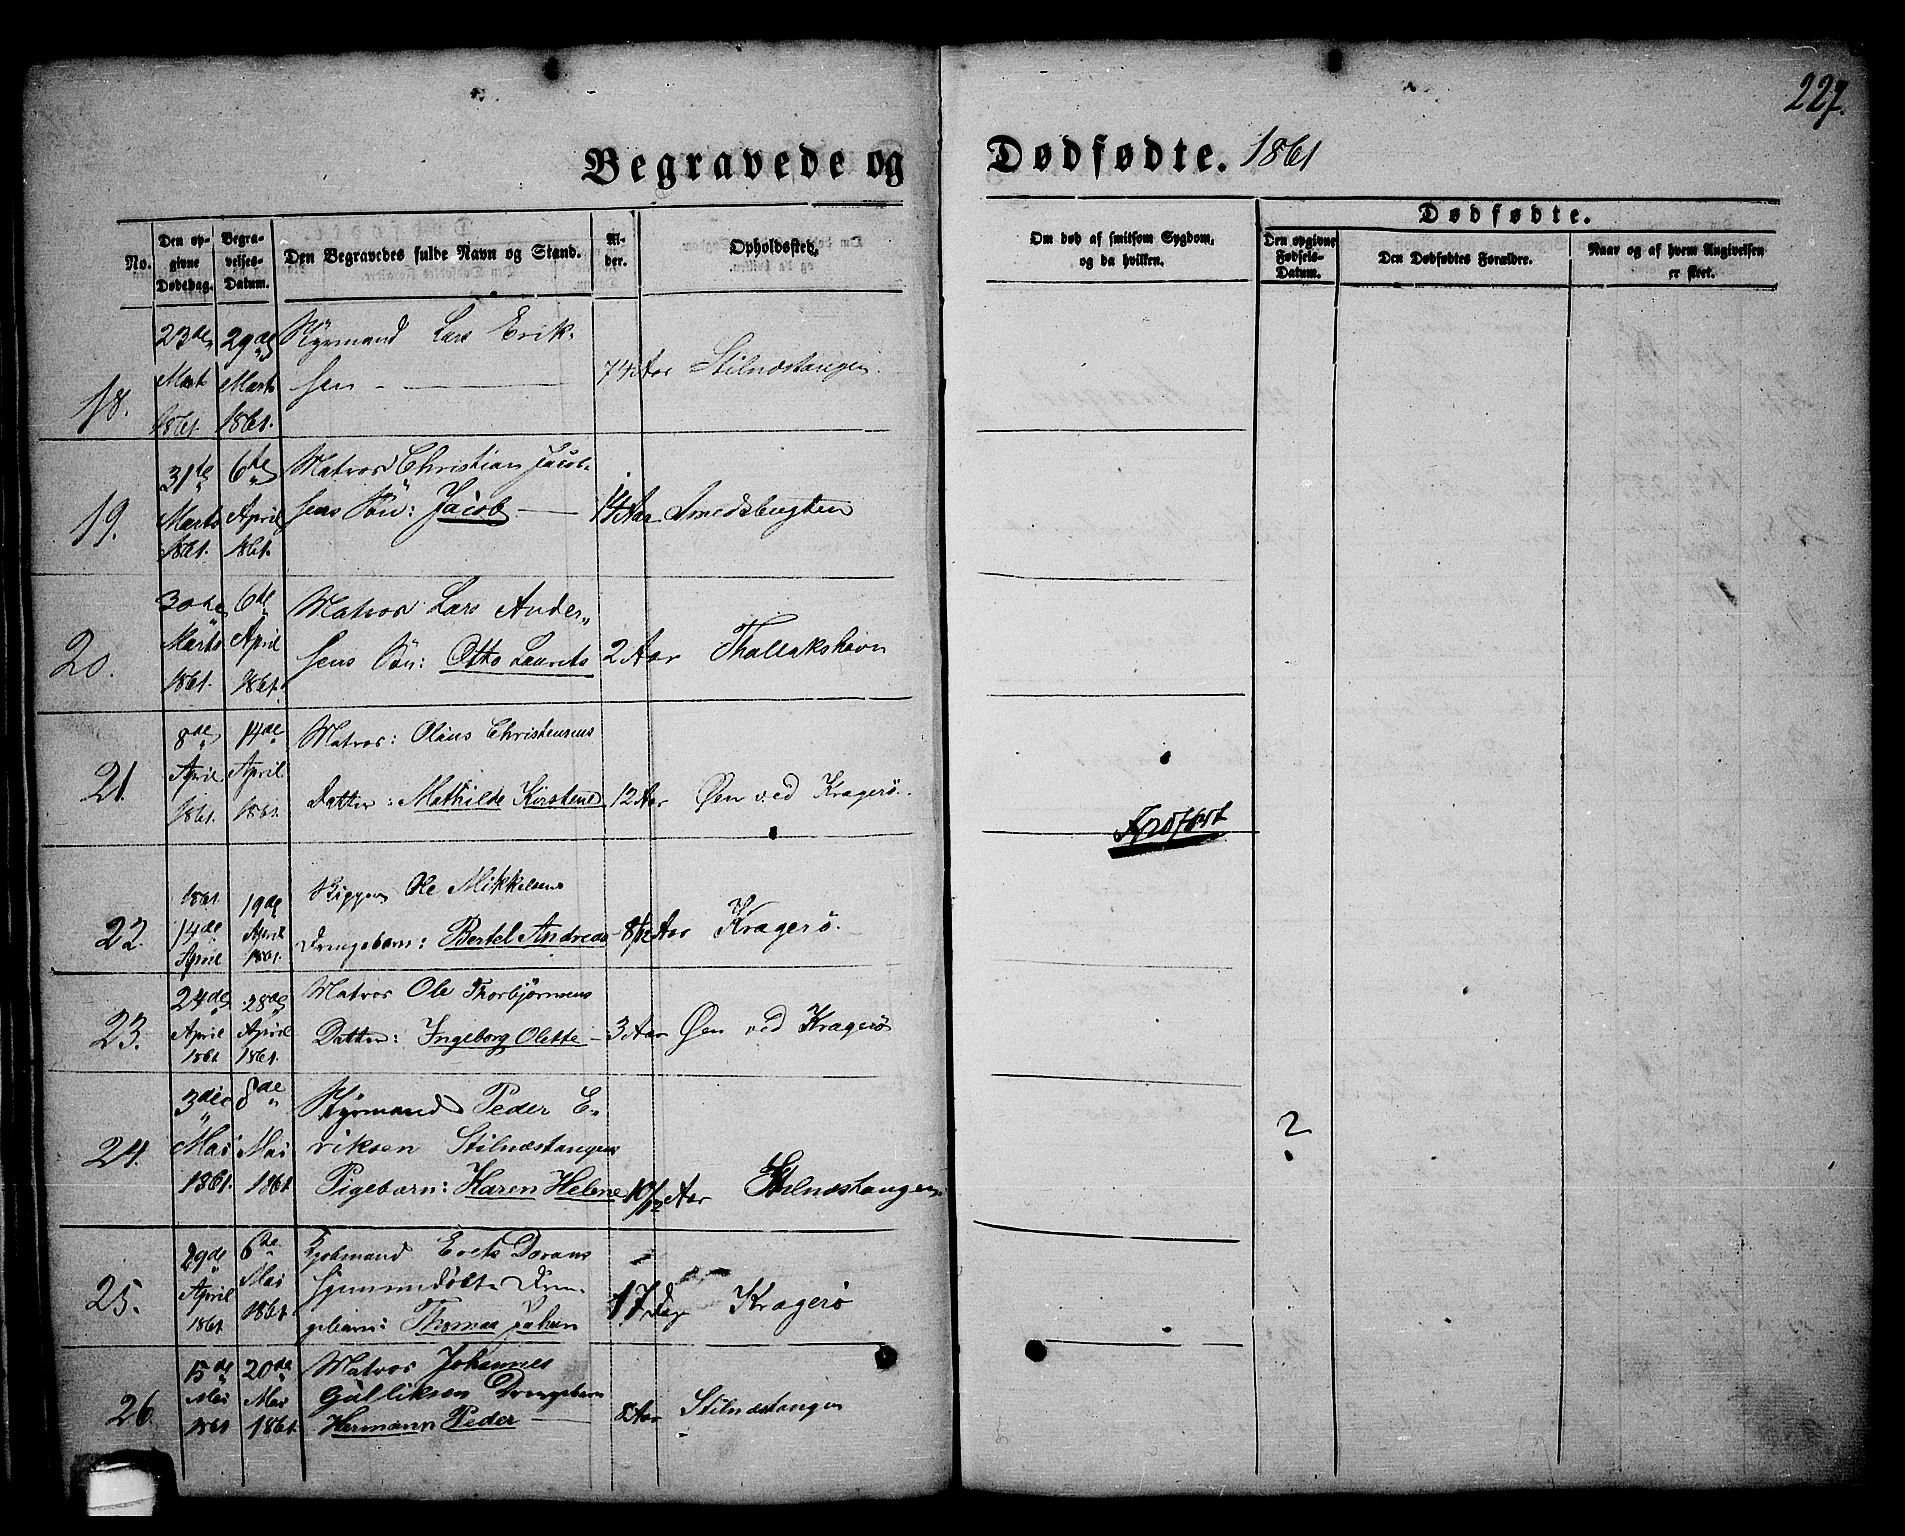 227.
Begravede og Dødfødte. 1861
No.
Den opgivne Dødsdag.
Begravelses-Datum.
Den Begravedes fulde Navn og Stand.
Alder.
Opholdssted.
Om død af smitsom Sygdom, og da hvilken.
Dødfødte.
Den opgivne Fødsels-Datum.
Den Dødfødtes Forældre.
Naar og af hvem Angivelsen er skeet.
18. 23de Marts 1861. 29de Marts 1861. Styrmand Lars Erik-
sen - 74 Aar Stilnæstangen.
19. 31te Marts 1861. 6te April 1861. Matros Christian Jacob-
sens Søn: Jacob 14 Aar Smedsbugten
20. 30te Marts 1861. 6de April 1861. Matros Lars Ander-
sens Søn: Otto Laurits 2 Aar Thallakshavn
21. 8de April 1861. 14de April 1861. Matros: Olaus Christensens
Datter: Mathilde Kirstene 12 Aar Øen ved Kragerö.
22. 1861. 14de April 19de April 1861. Skipper Ole Mikkelsens
Drengebarn: Bertel Andreas Aar Kragerö.
23. 24de April 1861. 28de April 1861. Matros Ole Thorbjörnsens
Datter: Ingeborg Olette - 3 Aar Øen ved Kragerö
24. 3die Mai 1861. 8de Mai 1861. Styrmand Peder E-
riksen Stilnæstangens
Pigebarn: Karen Helene 10/12 Aar Stilnæstangen
?
25. 29de April 1861. 6te Mai 1861.
Dren-
gebarn: Thomas Johan 17 Dage Kragerö
26. 15de Mai 1861. 20de Mai 1861. Matros Johannes
Gulliksen Drengebarn
Hermann Peder 8 Aar Stilnæstangen